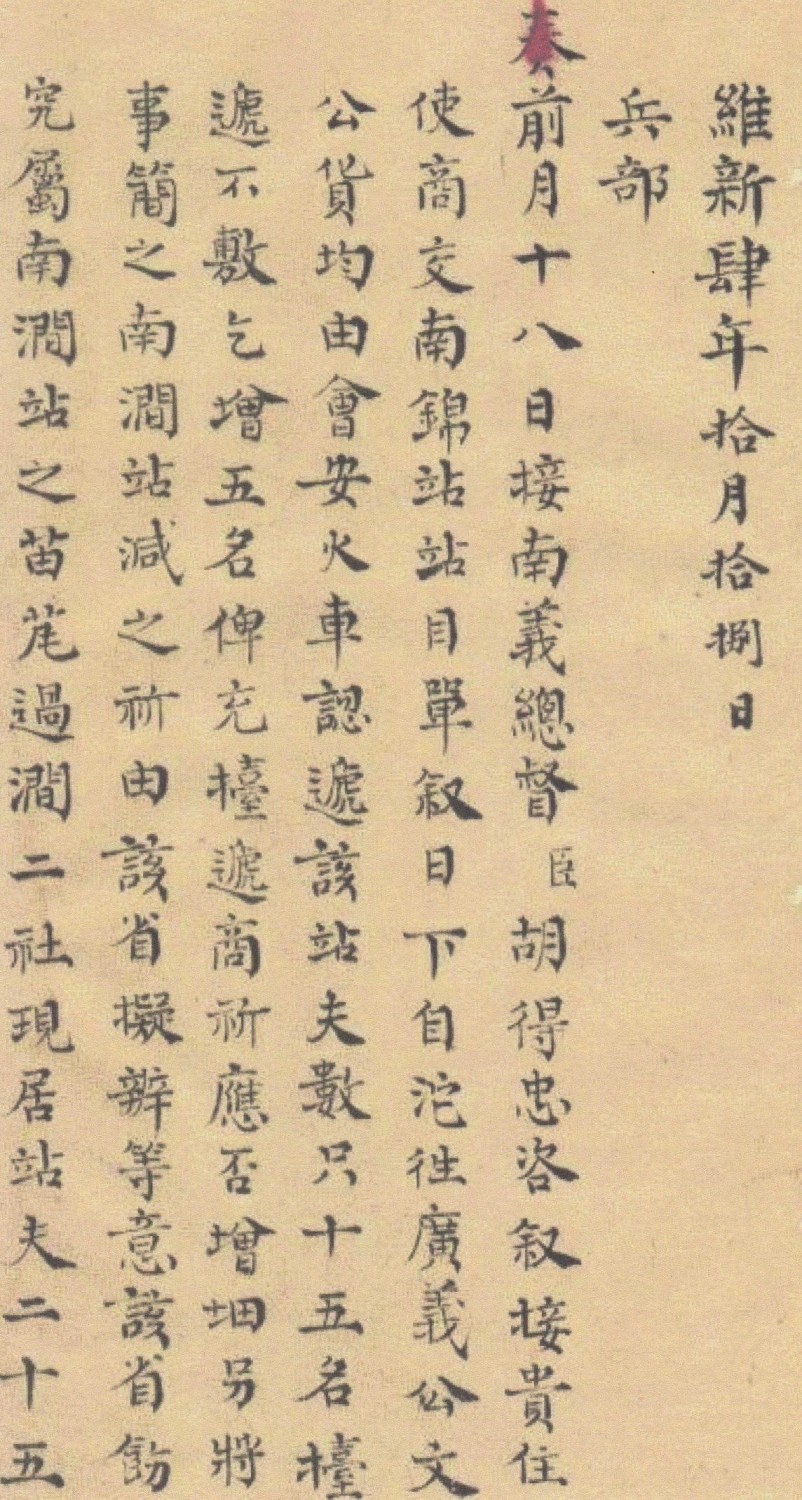 維新肆年拾月拾捌日
兵部
奏前月十八日接南義總督臣胡得忠咨叙接貴住
使商交南錦站站目單叙日下自沱往廣義公文
公貨均由會安火車認遞該站夫數只十五名擡
遞不敷乞增五名俾充擡遞商祈應否增𪢮另將
事簡之南澗站減之祈由該省擬辦等意該省飭
究屬南澗站之苗芚過澗二社現居站夫二十五